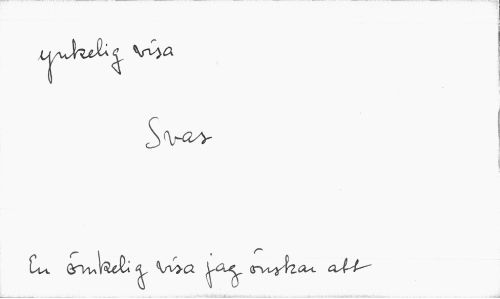 ynkelig visa
Svas
En ömkelig visa jag önskar att